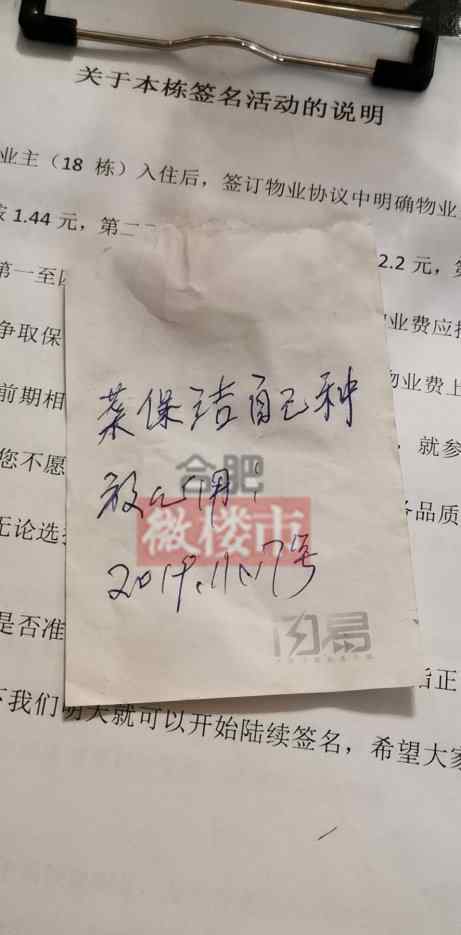 关于本栋签名活动的说明
业主（18 栋）入住后，签订物业协议中明确物业
1.44 元，第二
2.2 元，第
第一至四
业费应
争取保
物业费上
前期相
，就参
您不愿
各品质
无论选
是否准
后正
下我们明天就可以开始陆续签名，希望大家
菜保洁自己种
放心用！
2019.11.17号
合肥
微楼市